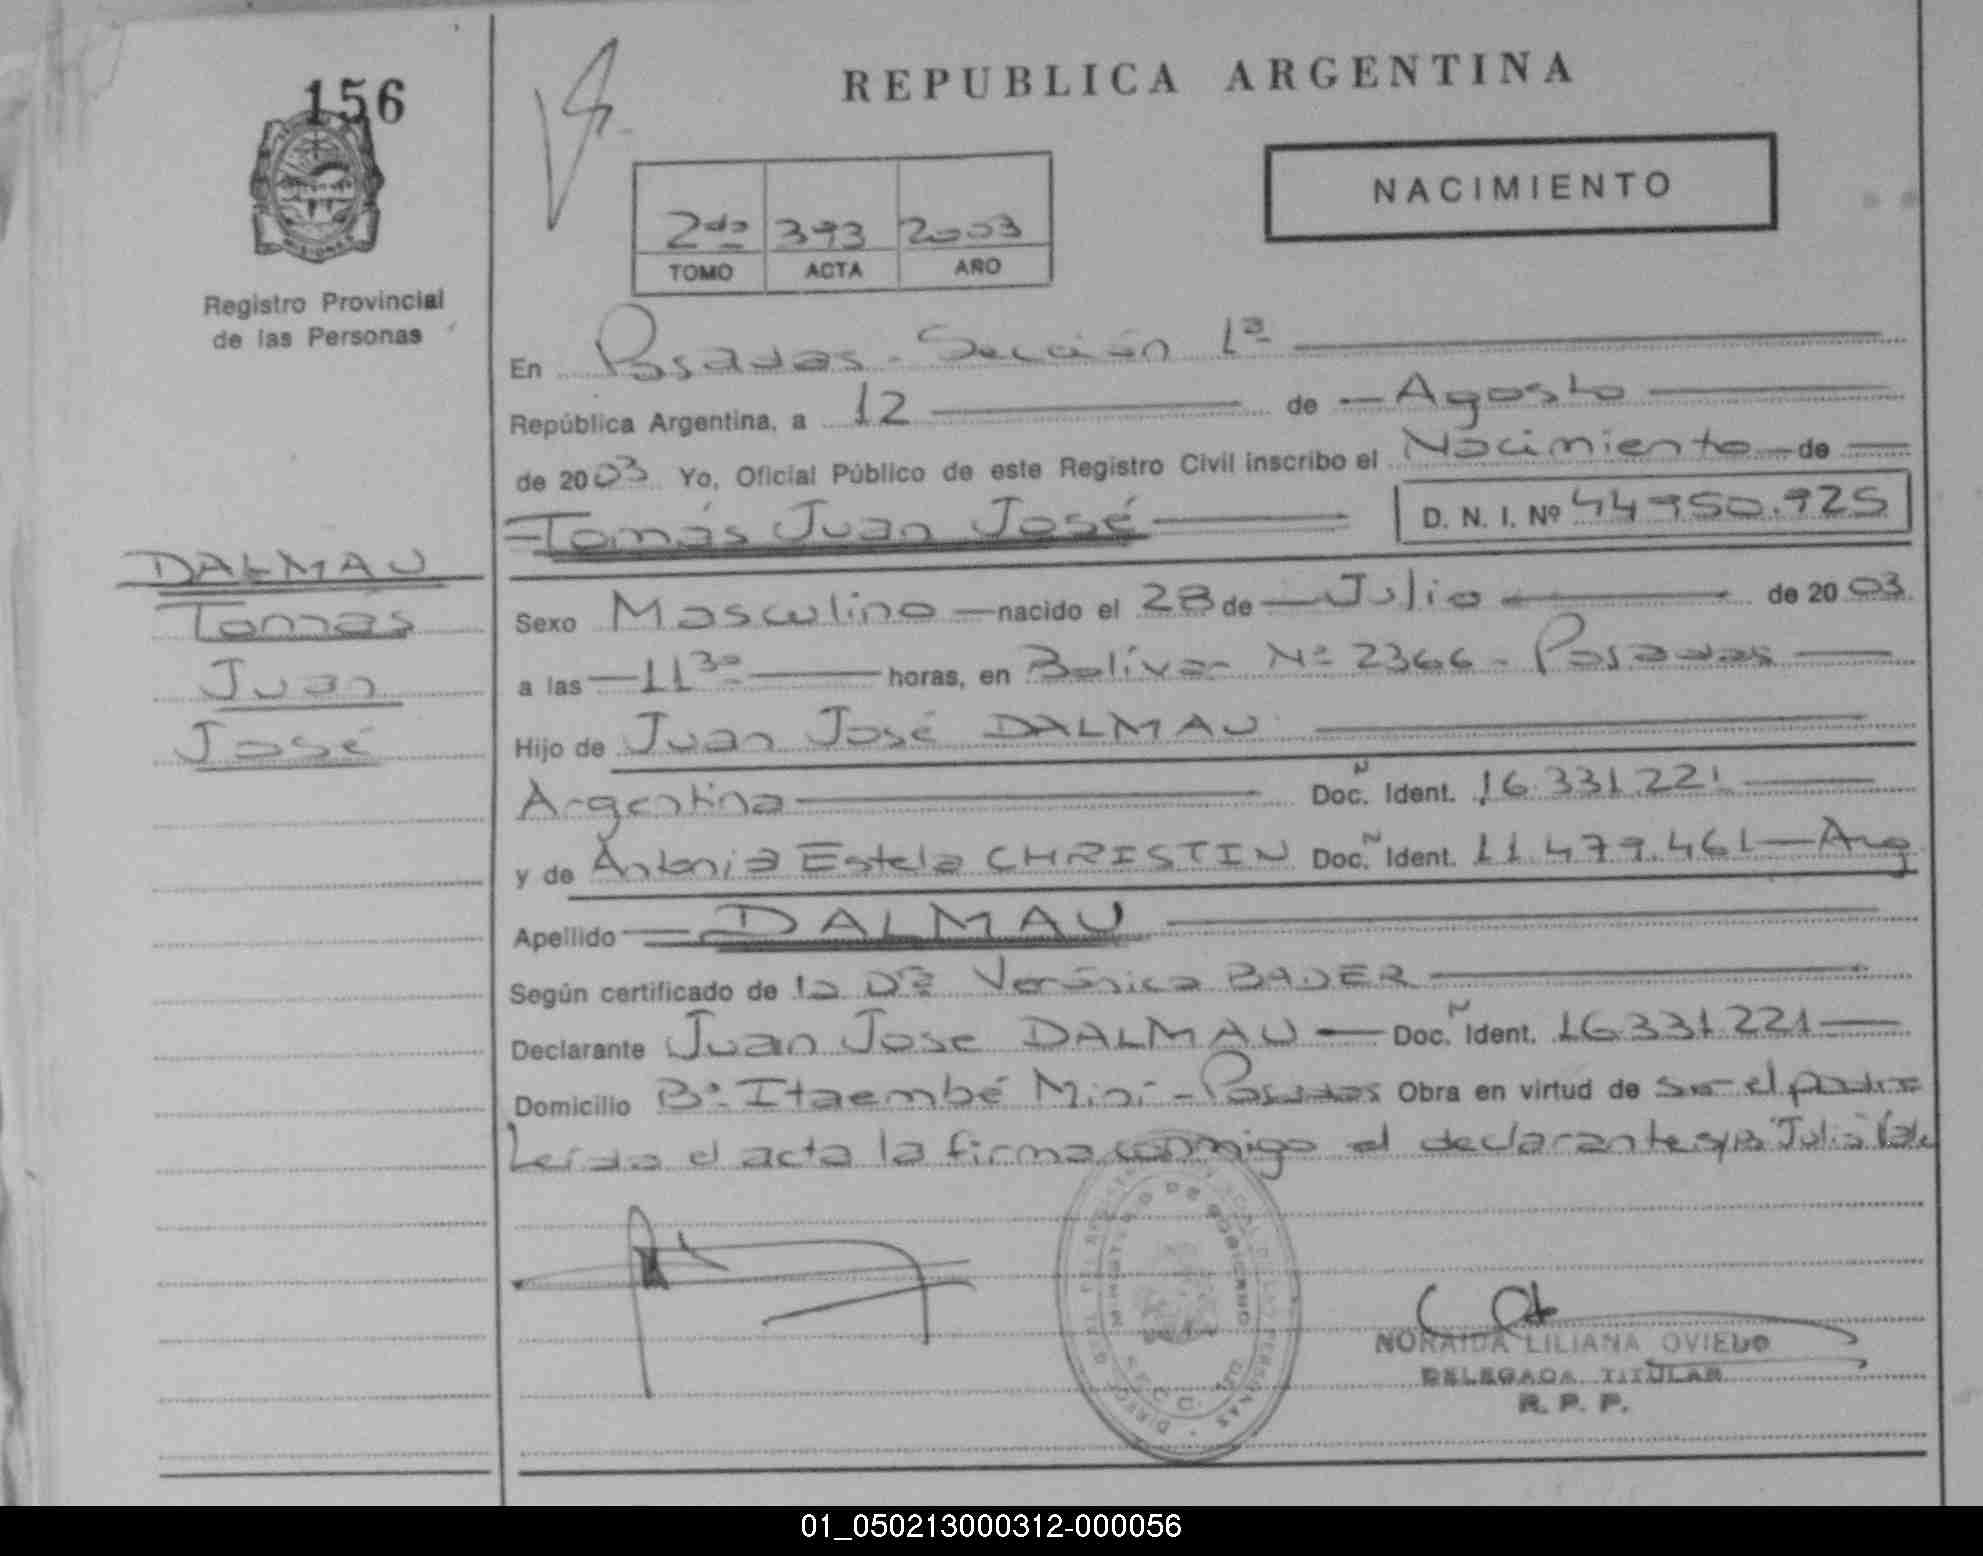 156
Registro Provincial
de las Personas
DALMAU
Tomás
Juan
José
REPUBLICA ARGENTINA
NACIMIENTO
2do 393 2003
TOMO ACTA AÑO
En Posadas - Sección 1ª
República Argentina, a 12 de Agosto
de 2003 Yo, Oficial Público de este Registro Civil inscribo el Nacimiento de
Tomás Juan José D. N. I. Nº 44950.925
Sexo Masculino nacido el 28 de Julio de 2003
a las 11 30 horas, en Bolívar Nº 2366 - Posadas
Hijo de Juan José DALMAU
Argentina Doc. Ident. 16.331.221
y de Antonia Estela CHRISTIN Doc. Ident. 11.479.461 - Arg
Apellido DALMAU
Según certificado de la Drª Verónica BAUER
Declarante Juan Jose DALMAU Doc. Ident. 16.331.221
Domicilio Bº Itaembé Miní - Posadas Obra en virtud de ser el padre
Leída el acta la firma conmigo el declarante
MINISTERIO DE GOBIERNO
NORAIDA LILIANA OVIEDO
DELEGADA TITULAR
R. P. P.
01_050213000312-000056